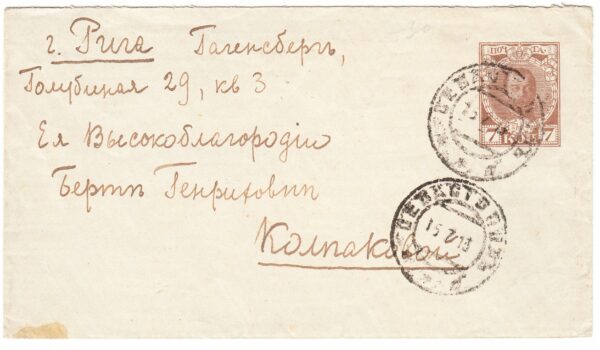 г. Рига Гагенсбергъ,
Голубиная 29, кв 3
Ея Высокоблагородію
Бертѣ Генриховнѣ
Колпаковой
ПОЧТА
7 КОП 7
СЕВАСТОПОЛЬ